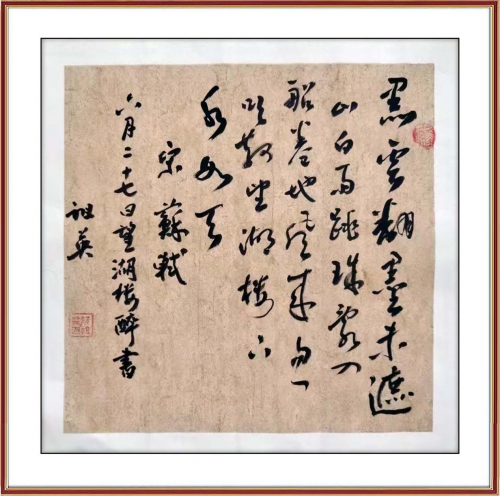 黑雲翻墨未遮
山白雨跳珠亂入
船卷地風來忽
吹散望湖樓下
水如天
宋蘇軾
六月二十七日望湖樓醉書
祖英